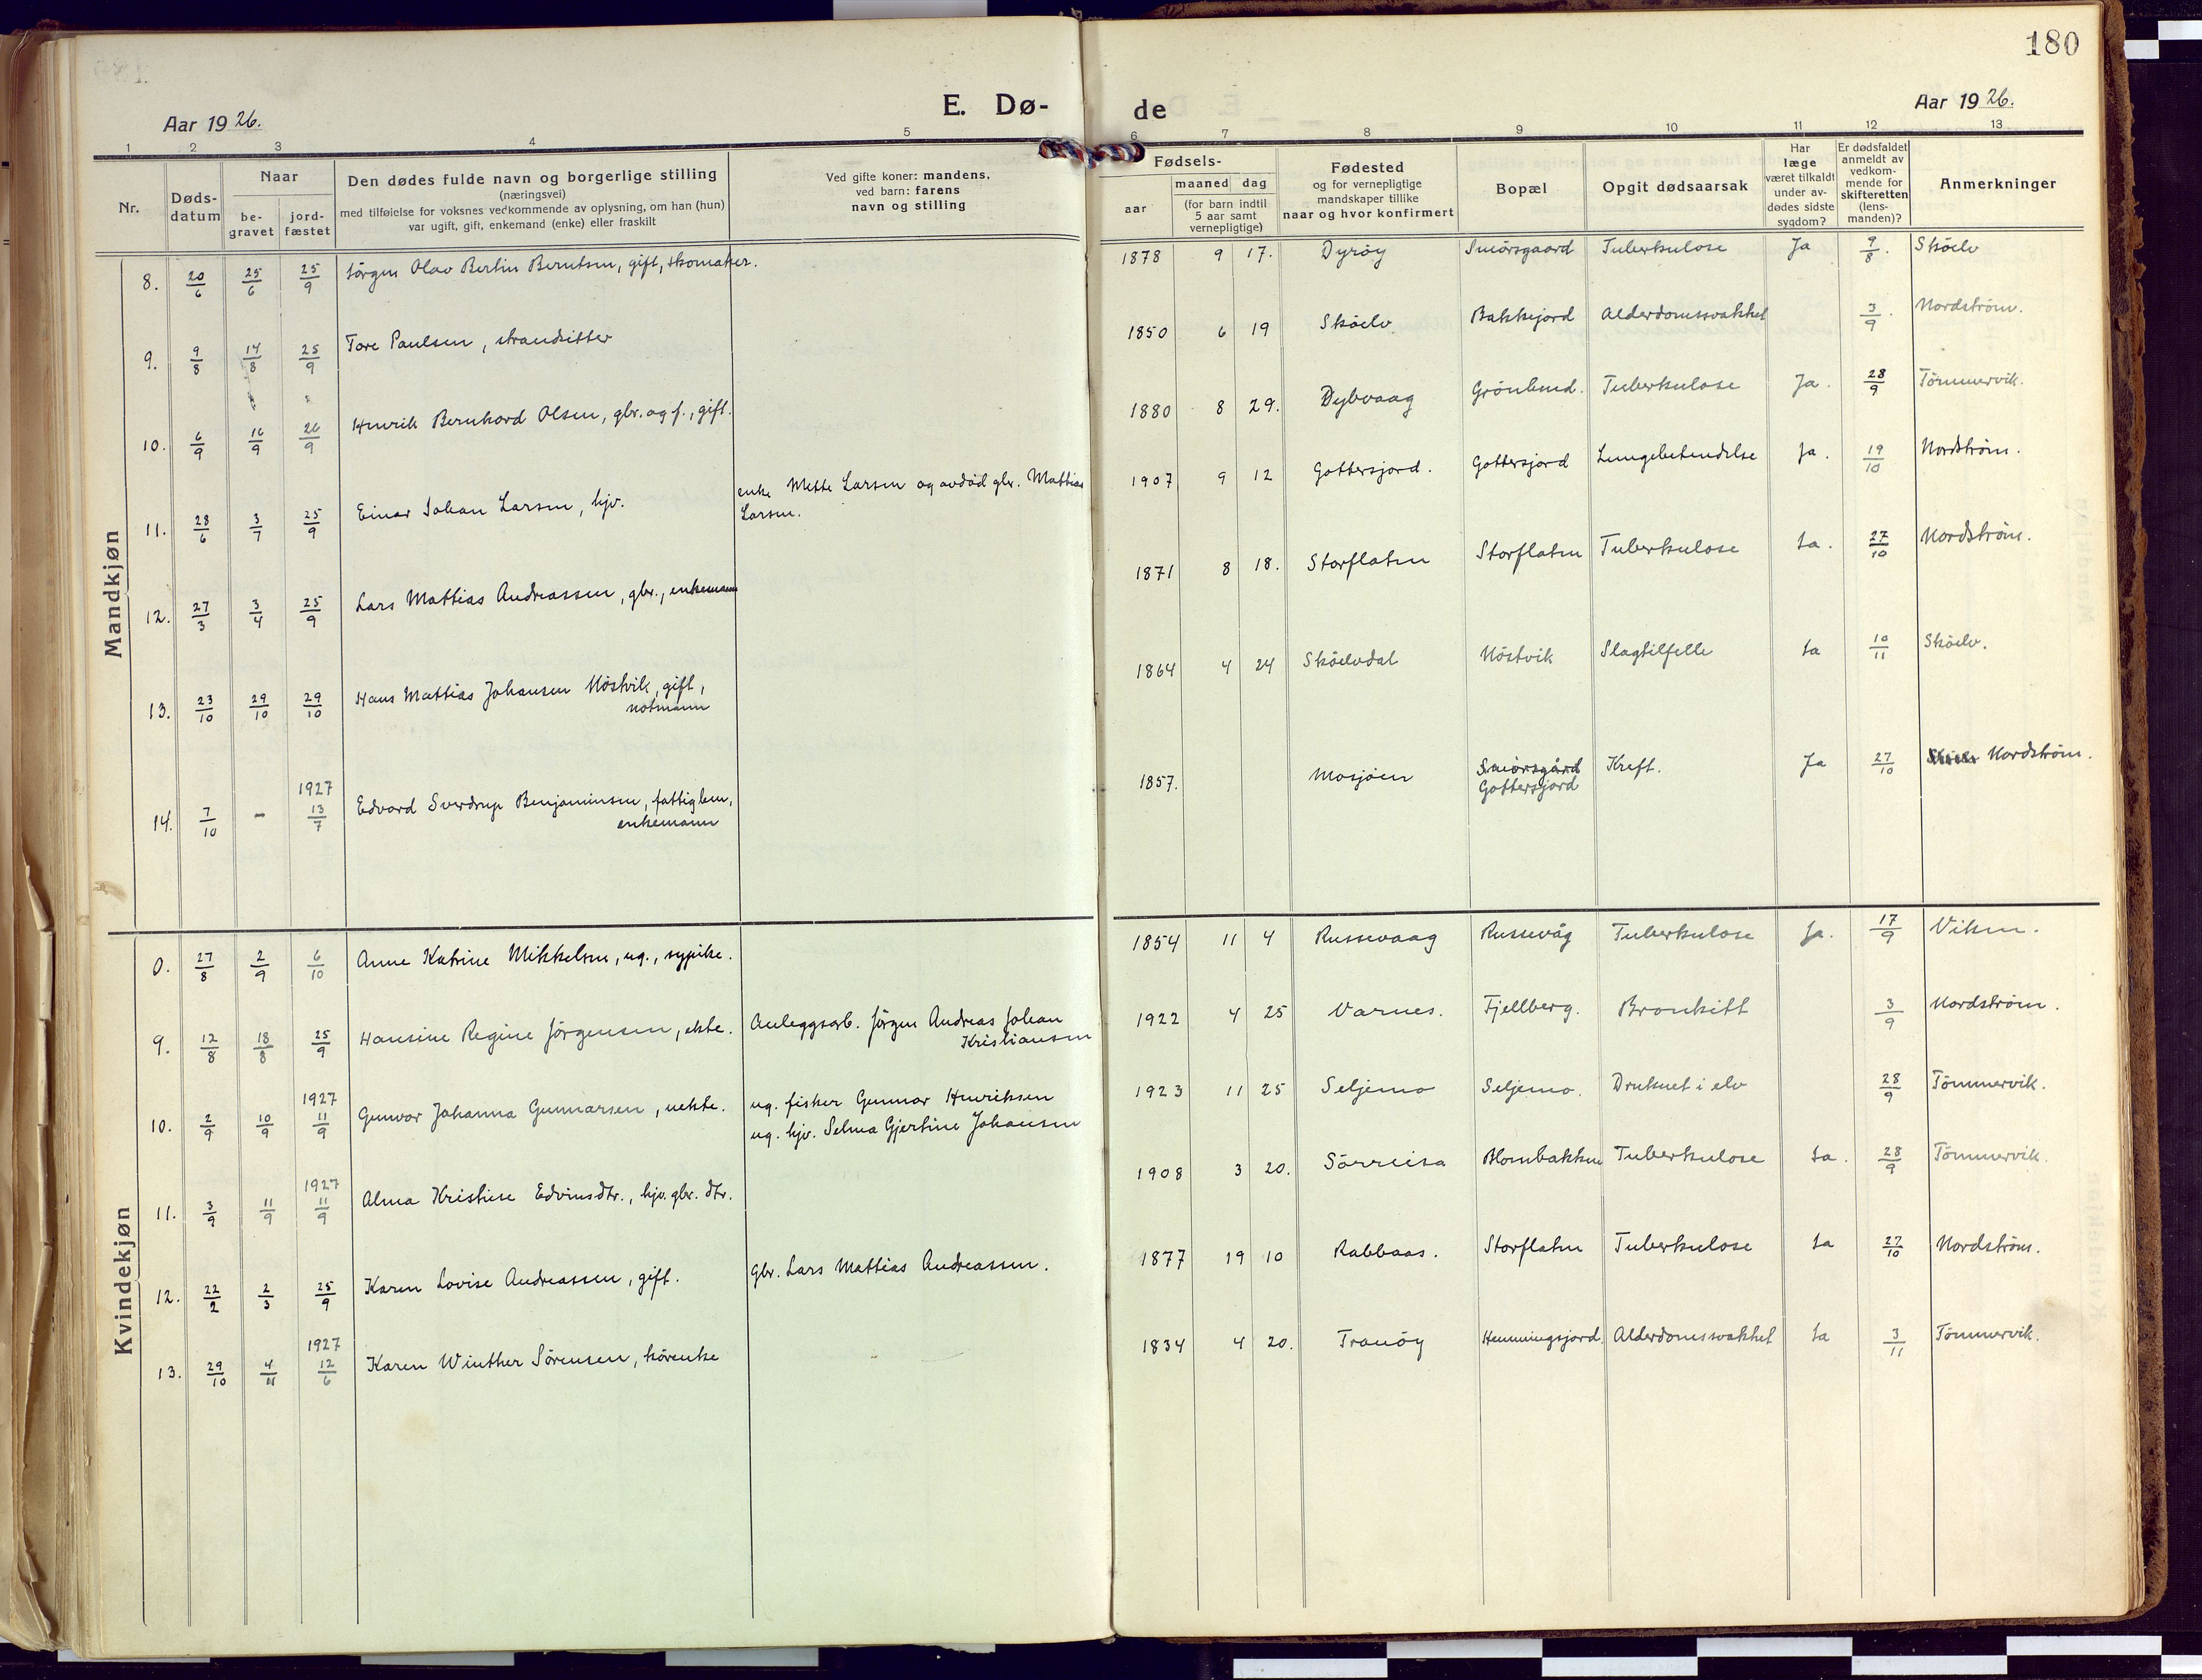 180
E. Dø-
de
Aar 1926.
Aar 1926.
1 2 3 4 5 6 7 8 9 10 11 12 13
Nr.
Døds-
datum
Naar
be-
gravet
jord-
fæstet
Den dødes fulde navn og borgerlige stilling
(næringsvei)
med tilføielse for voksnes vedkommende av oplysning, om han (hun)
var ugift, gift, enkemand (enke) eller fraskilt
Ved gifte koner: mandens,
ved barn: farens
navn og stilling
Fødsels-
aar
maaned dag
(for barn indtil
5 aar samt
vernepligtige)
Fødested
og for vernepligtige
mandskaper tillike
naar og hvor konfirmert
Bopæl
Opgit dødsaarsak
Har
læge
været tilkaldt
under av-
dødes sidste
sygdom?
Er dødsfaldet
anmeldt av
vedkom-
mende for
skifteretten
(lens-
manden)?
Anmerkninger
Mandkjøn
8. 20/6 25/6 25/9 Jörgen Olav Bertin Berntsen, gift, skomaker. 1878 9 17. Dyröy Smörsgaard Tuberkulose Ja 9/8. Sköelv
9. 9/8 14/8 25/9 Tore Paulsen, strandsitter 1850 6 19 Sköelv Bakkejord Alderdomssvakhet 3/9. Nordström.
10. 6/9 16/9 26/9 Henrik Bernhard Olsen, gbr. og f., gift. 1880 8 29. Dybvaag Grönlund. Tuberkulose Ja. 28/9 Tömmervik.
11. 28/6 3/7 25/9 Einar Johan Larsen, hjv. enke Mette Larsen og avdöd gbr. Mattias
Larsen. 1907 9 12 Gottersjord. Gottersjord Lungebetendelse Ja. 19/10 Nordström.
12. 27/3 3/4 25/9 Lars Mattias Andreassen, gbr., enkemann 1871 8 18. Storflaten Storflaten Tuberkulose Ja. 27/10 Nordström.
13. 23/10 29/10 29/10 Hans Mattias Johansen Nöstvik, gift,
notmann 1864 4 24 Sköelvdal Nöstvik Slagtilfelle Ja 10/11 Sköelv.
1927
14. 7/10 - 13/7 Edvard Sverdrup Benjaminsen, fattiglem,
enkemann 1857. Mosjöen Smörsgård
Gottersjord Kreft. Ja 27/10 Nordström.
Kvindekjøn
27/8 2/9 6/10 Anne Katrine Mikkelsen, ug., sypike. 1854 11 4 Russevaag Russevåg Tuberkulose Ja. 17/9 Viken.
9. 12/8 18/8 25/9 Hansine Regine Jörgensen, ekte. Anleggsarb. Jörgen Andreas Johan
Kristiansen 1922 4 25 Varnes. Fjellberg. Bronkitt 3/9 Nordström.
1927
10. 2/9 10/9 11/9 Gunvor Johanna Gunnarsen, uekte. ug. fisker Gunnar Henriksen
ug. hjv. Selma Gjertine Johansen 1923 11 25 Seljemo Seljemo. Druknet i elv 28/9 Tömmervik.
1927
11. 3/9 11/9 11/9 Alma Kristine Edvinsdtr., hjv. gbr. dtr. 1908 3 20. Sörreisa Blombakken Tuberkulose Ja. 28/9 Tömmervik.
12. 22/2 2/3 25/9 Karen Lovise Andreassen, gift. Gbr. Lars Mattias Andreassen. 1877 19 10 Rabbaas. Storflaten Tuberkulose Ja 27/10 Nordström.
1927
13. 29/10 4/11 12/6 Karen Winther Sörensen, kårenke 1834 4 20. Tranöy Hemmingsjord. Alderdomssvakhet Ja 3/11 Tömmervik.